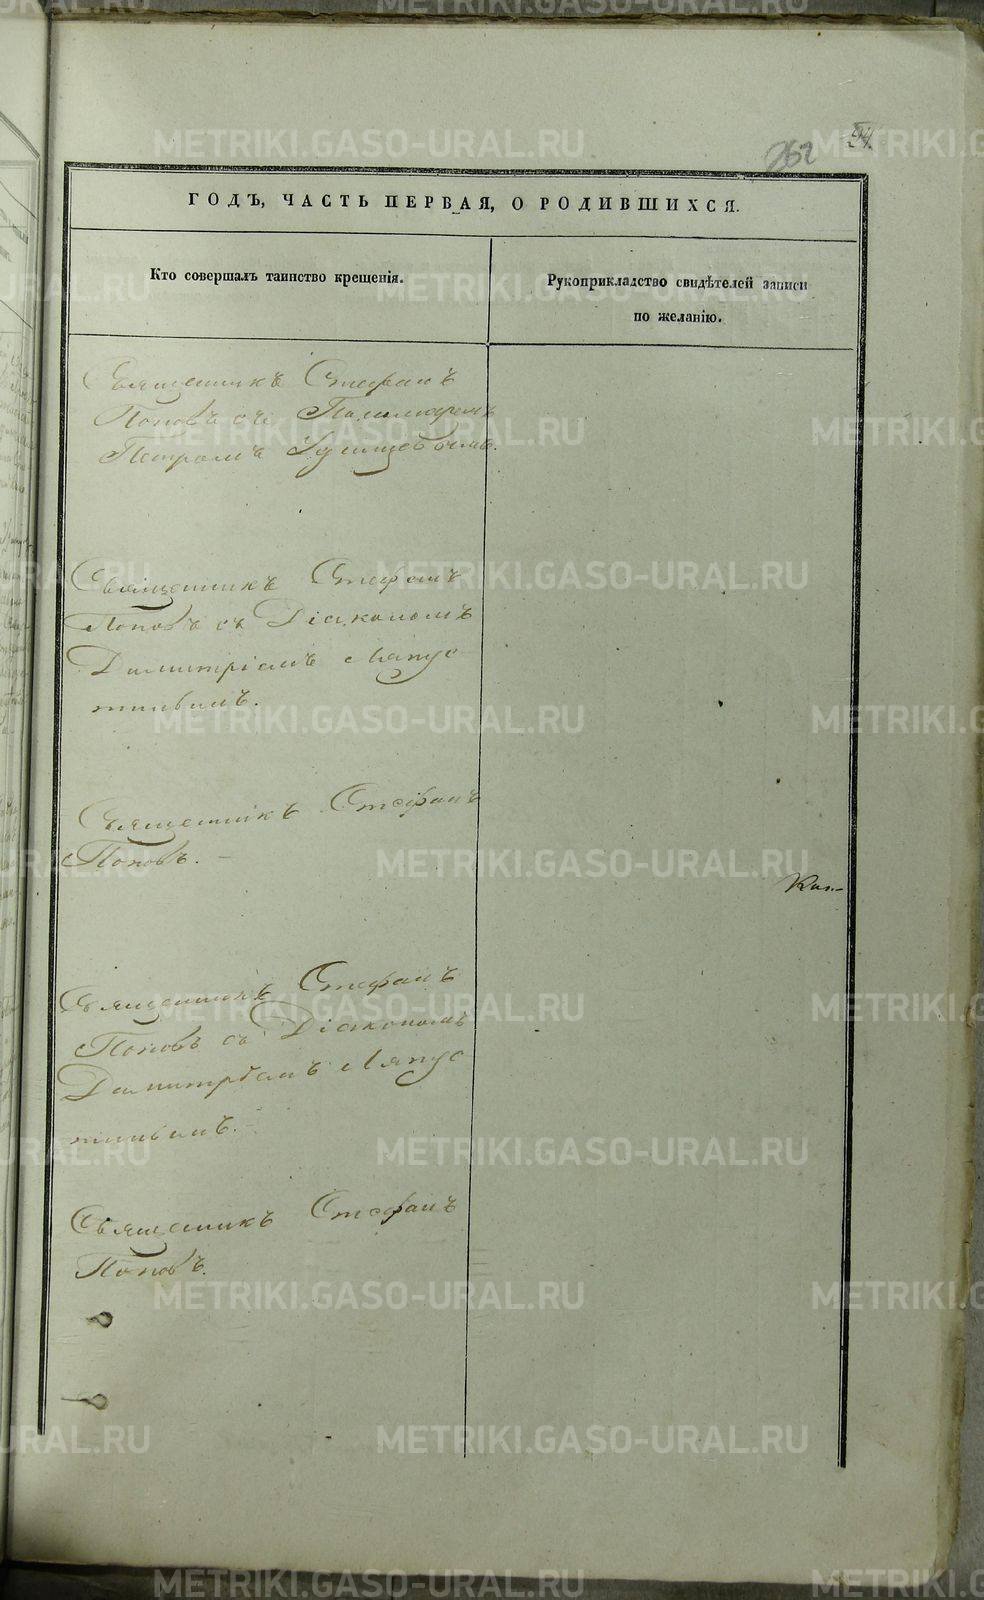 262
54.
ГОДЪ, ЧАСТЬ ПЕРВАЯ, О РОДИВШИХСЯ.
Кто совершалъ таинство крещенія.
Рукоприкладство свидѣтелей записи
по желанію.
Священникъ Стефанъ
Поповъ съ
Петромъ
Священникъ Стефанъ
Поповъ съ Діакономъ
Димитріемъ Лапус
тинымъ.
Священникъ Стефанъ
Поповъ.
Священникъ Стефанъ
Поповъ съ Діакономъ
Димитріемъ Лапус
тинымъ.
Священникъ Стефанъ
Поповъ.
METRIKI.GASO-URAL.RU